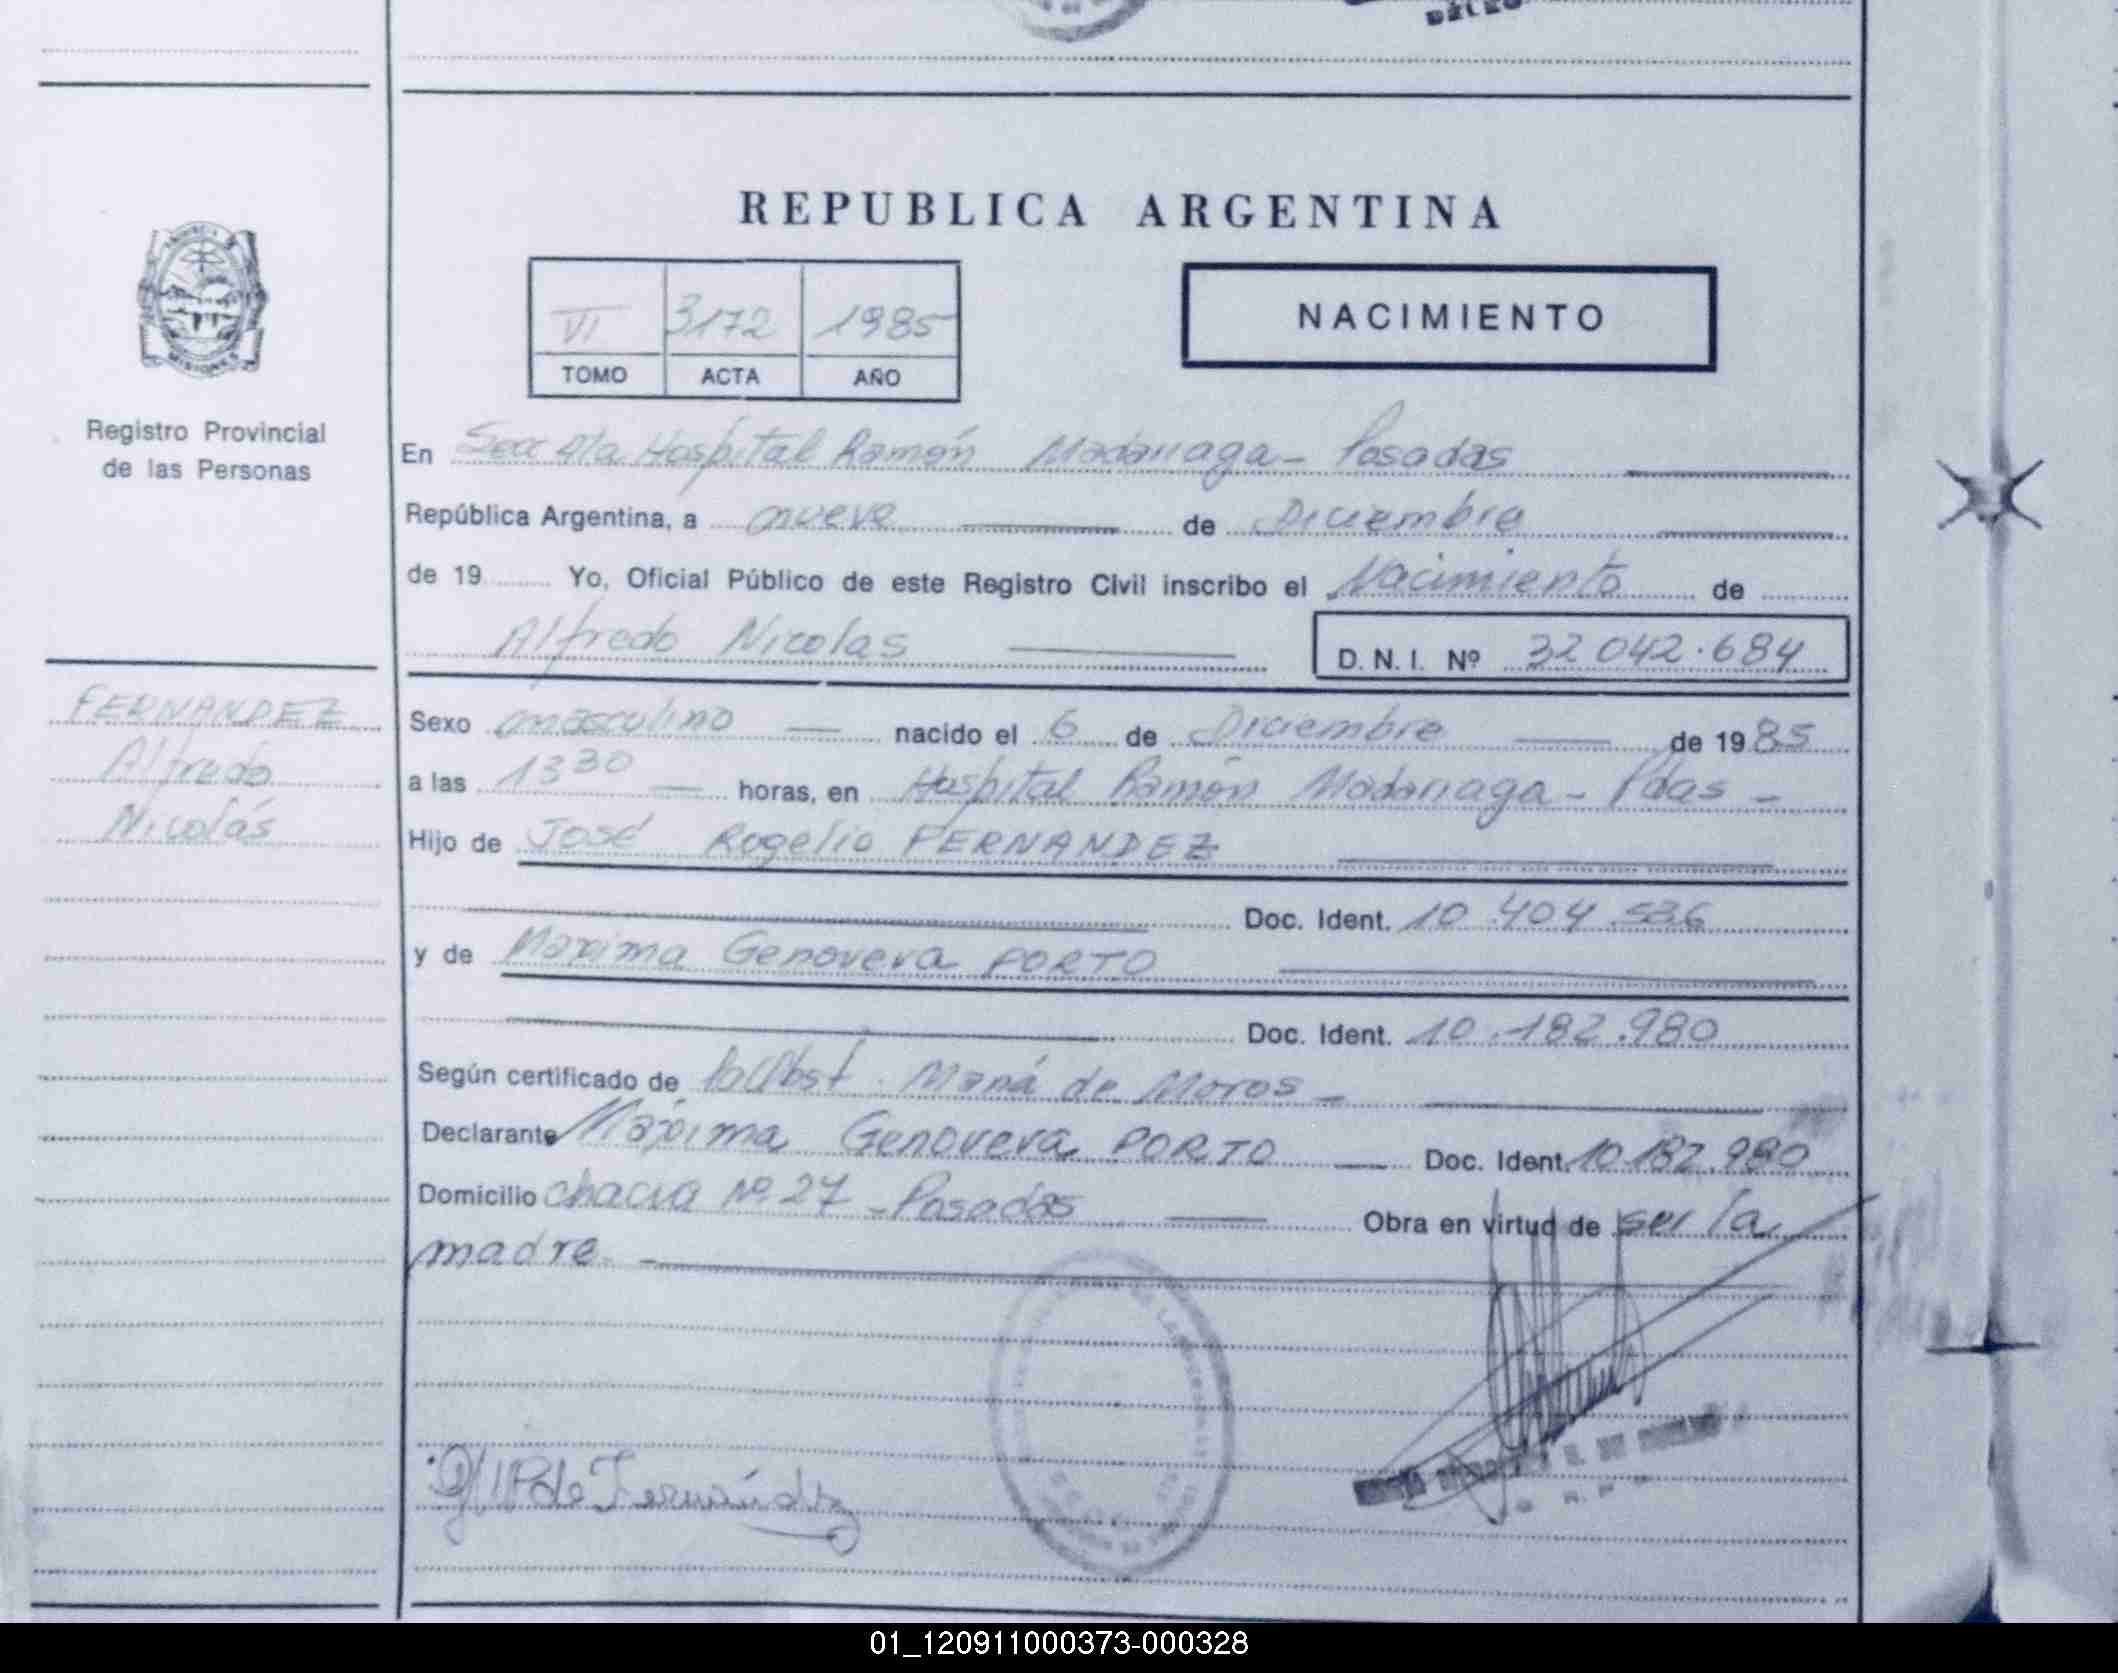 REPUBLICA ARGENTINA
VI 3172 1985
TOMO ACTA AÑO
NACIMIENTO
MISIONES
Registro Provincial
de las Personas
En Secc 4ta Hospital Ramón Madariaga - Posadas
República Argentina, a nueve de Diciembre
de 19 Yo, Oficial Público de este Registro Civil inscribo el Nacimiento de
Alfredo Nicolas D. N. I. Nº 32 042.684
FERNANDEZ
Alfredo
Nicolás
Sexo masculino nacido el 6 de Diciembre de 1985
a las 13 30 horas, en Hospital Ramón Madariaga - Pdas -
Hijo de José Rogelio FERNANDEZ
Doc. Ident. 10.404.536
y de Maxima Genoveva PORTO
Doc. Ident. 10.182.980
Según certificado de de Moros -
Declarante Máxima Genoveva PORTO Doc. Ident. 10.182.980
Domicilio chacra Nº 27 - Posadas Obra en virtud de ser la
madre -
P de Fernández
01_120911000373-000328